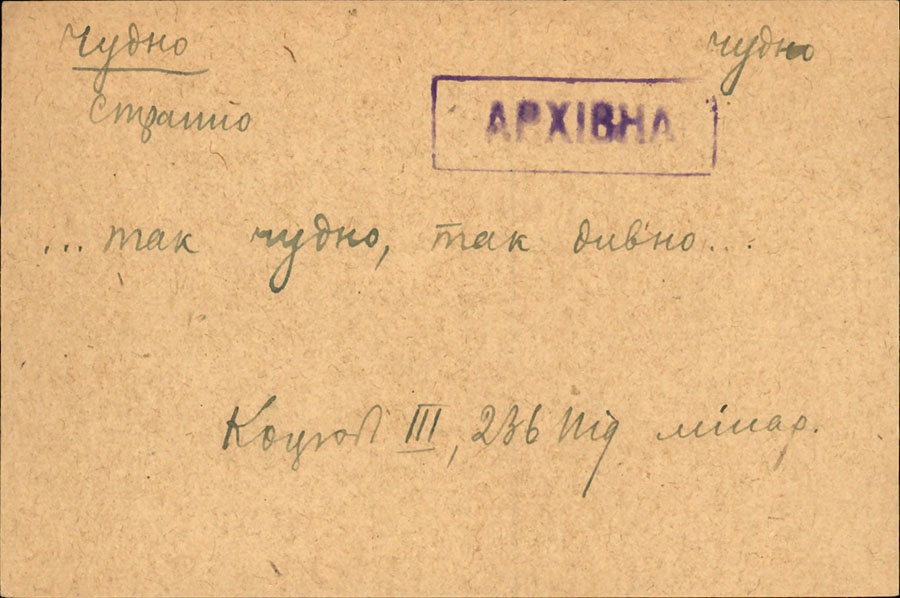 Чудно чудно
Странно
АРХІВНА
... так чудно, так дивно...
Коцюб III, 236 Під мінар.